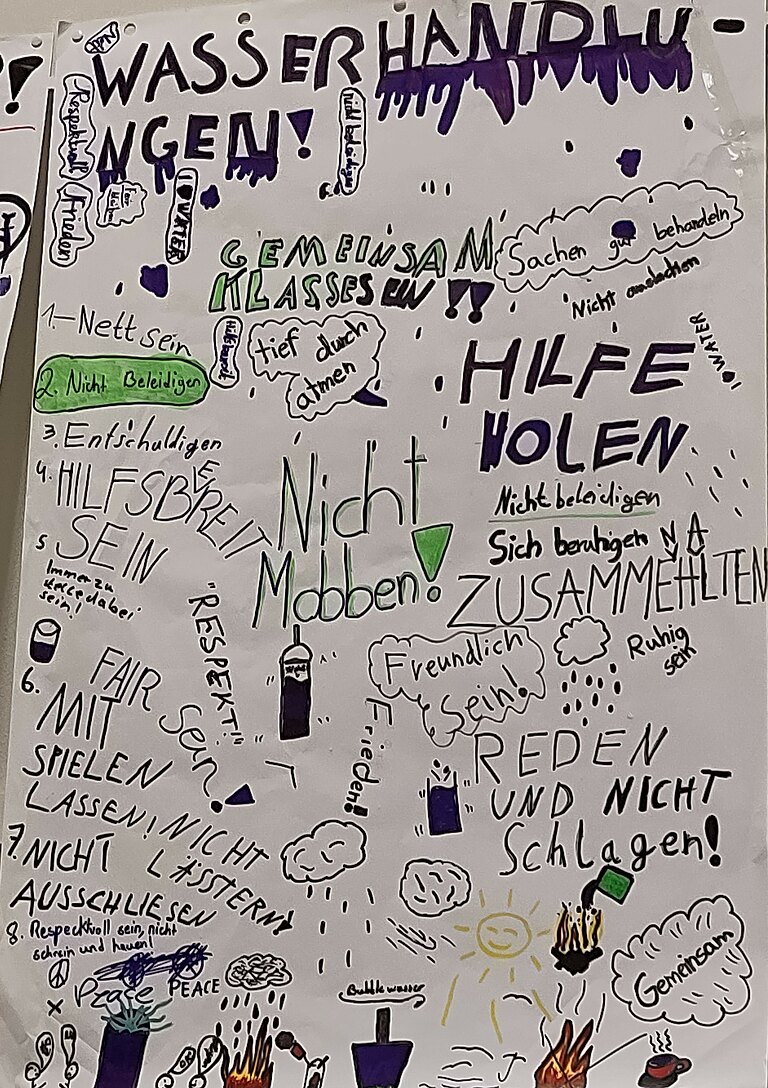 Nett
WASSERHANDLU-
NGEN!
Respektvoll
Frieden
nicht beleidigen
I WATER
GEMEINSAM
KLASSE SEIN!!
Sachen gut behandeln
Nicht auslachen
I WATER
1.-Nett sein
Hilfsbereit
tief durch
atmen
2. Nicht Beleidigen
HILFE
HOLEN
3. Entschuldigen
4. HILFSBEREIT
SEIN
Nicht
Mobben!
Nicht beleidigen
Sich beruhigen
ZUSAMMENHALTEN
5
Immer zu
sein!
"RESPEKT!"
Freundlich
Sein!
Ruhig
sein
6.
FAIR sein!
MIT
SPIELEN
LASSEN!
Frieden!
REDEN
UND NICHT
Schlagen!
NICHT
LÄSSTERN!
7. NICHT
AUSSCHLIESEN
8. Respecktvoll sein, nicht
schrein und hauen!
Peace
PEACE
Bubblewasser
Gemeinsam